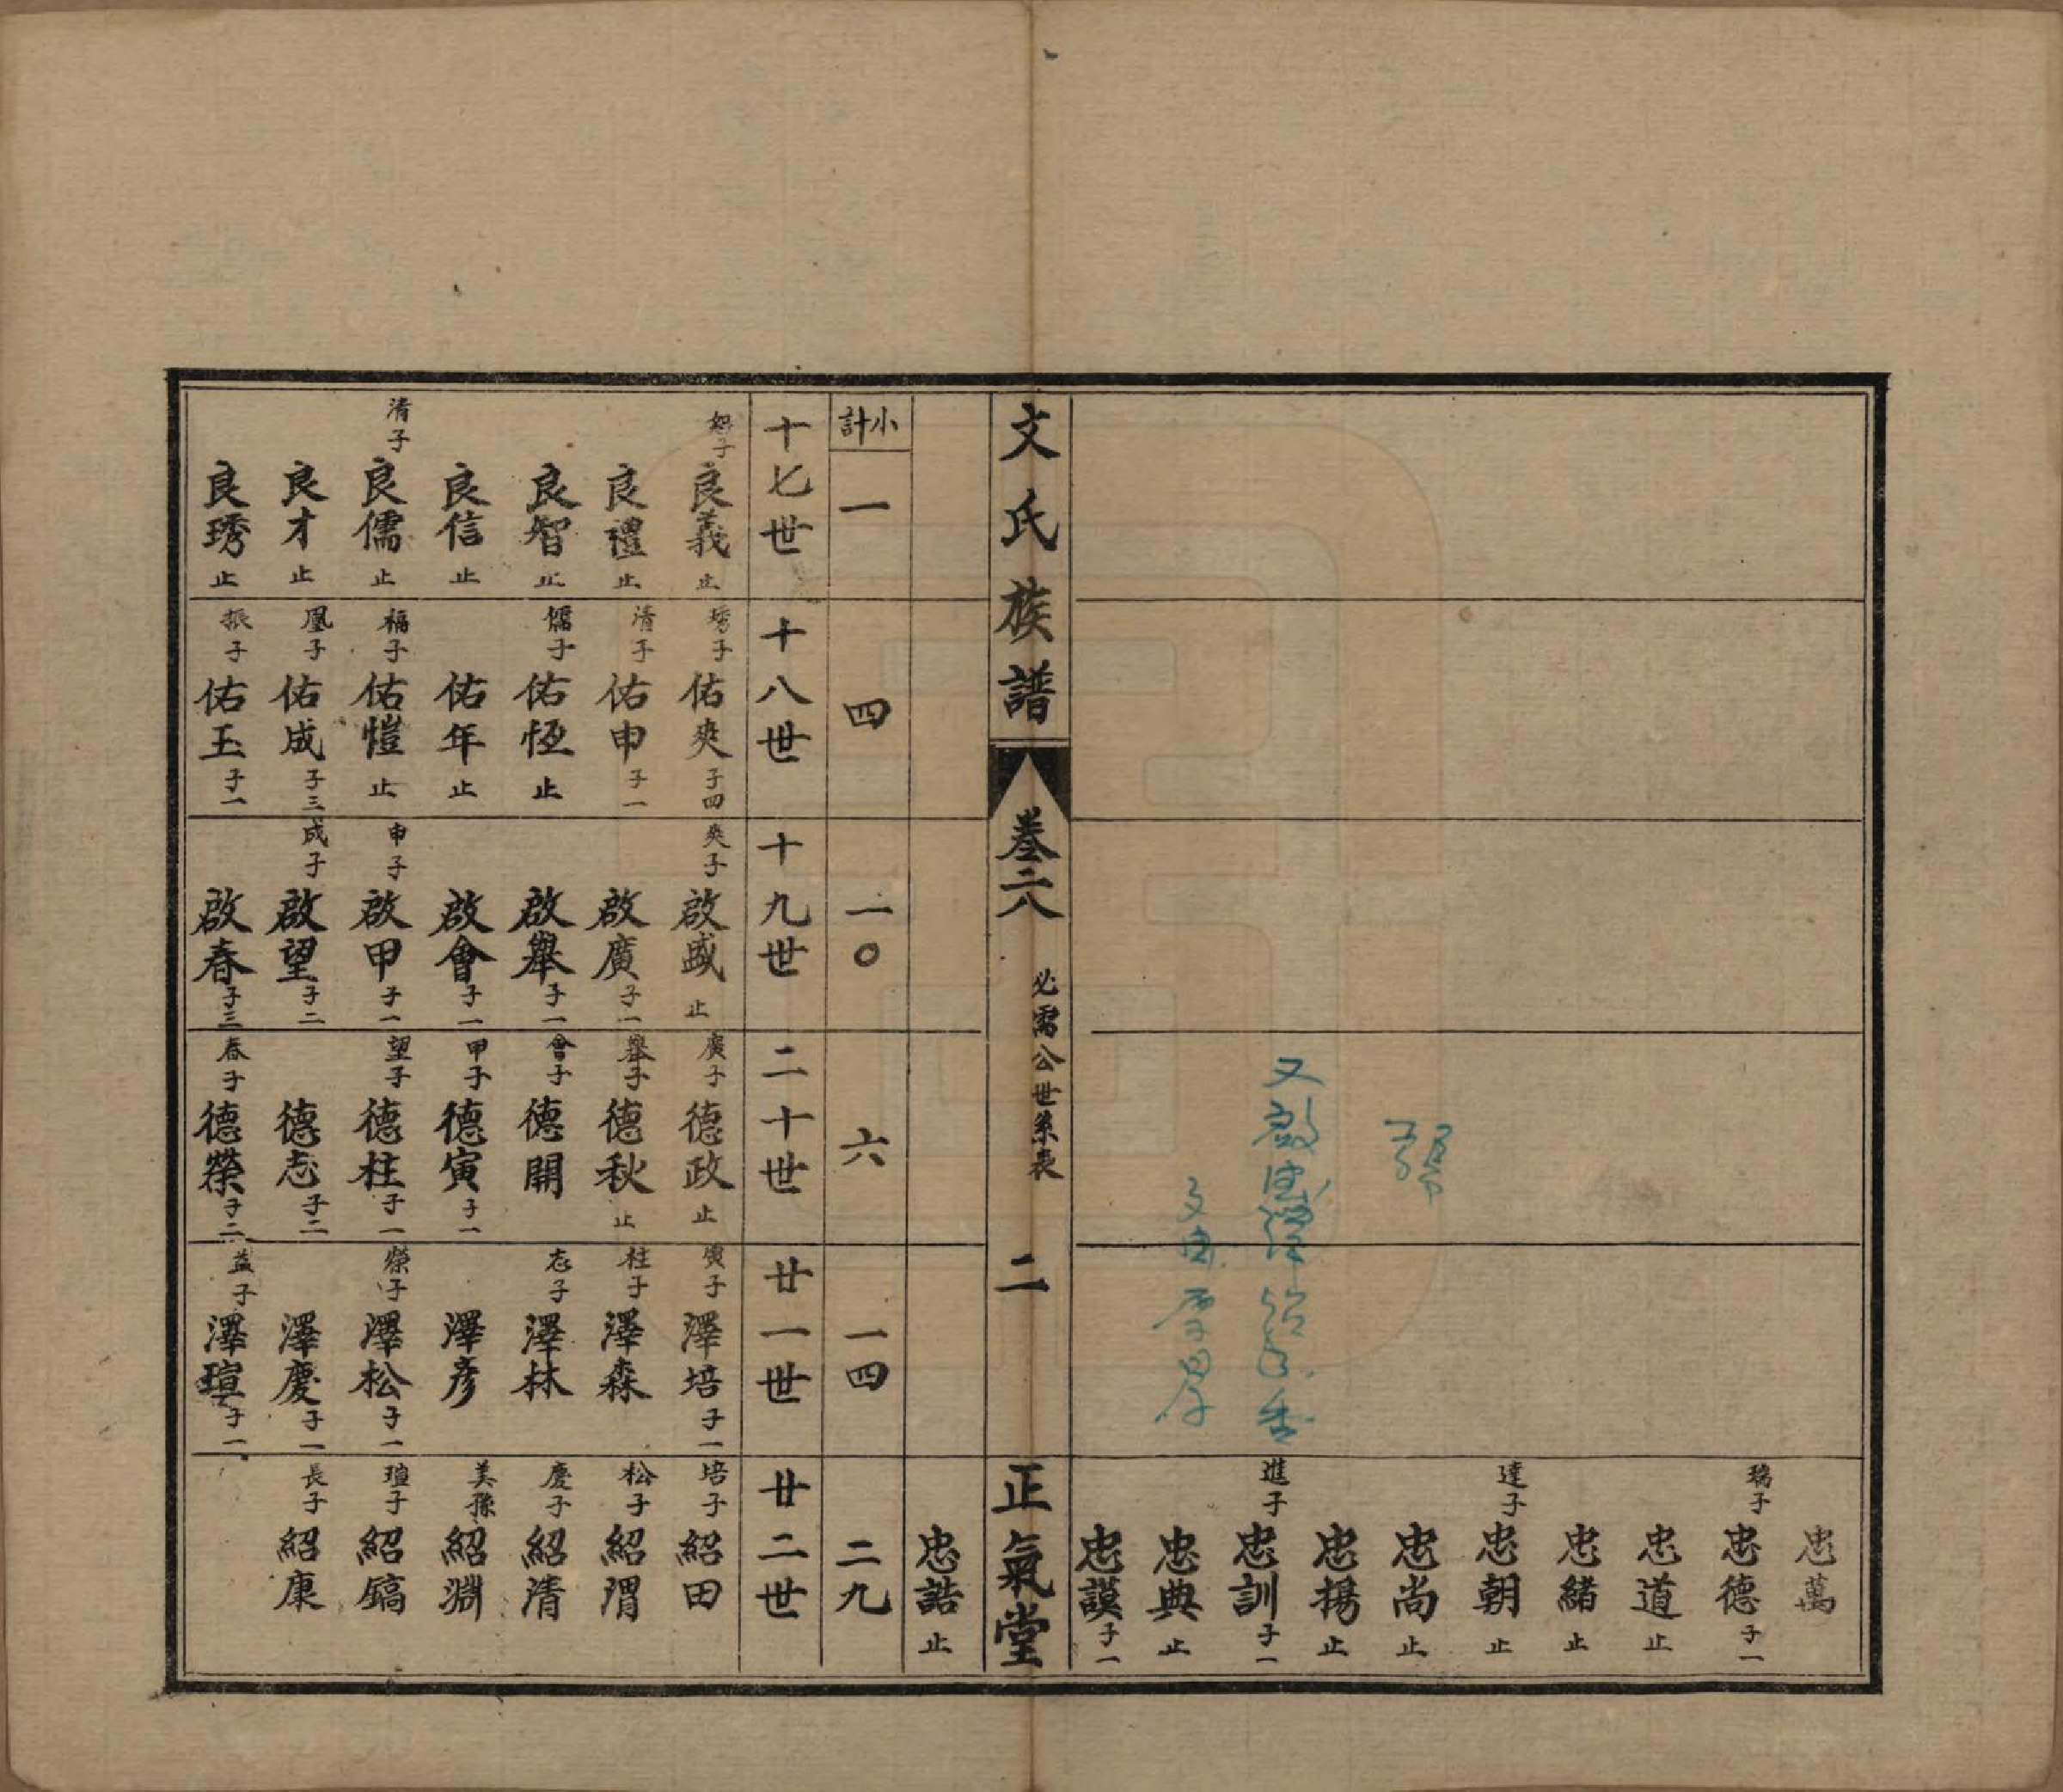 忠萬
瑞子 忠德 子一
忠道 止
忠緒 止
達子 忠朝 止
忠尚 止
忠揚 止
進子 忠訓 子一
忠典 止
忠謨 子一
文氏族譜 卷二八 必需公世系表 二 正氣堂
忠誥 止
小計 一 四 一〇 六 一四 二九
十七世
良義 止
良禮 止
良智 止
良信 止
清子 良儒 止
良才 止
良琇 止
十八世
琇子 佑爽 子四
清子 佑申 子一
儒子 佑恆 止
佑年 止
福子 佑愷 止
凰子 佑成 子三
振子 佑玉 子一
十九世
爽子 啟盛 止
啟廣 子一
啟舉 子一
啟會 子一
申子 啟甲 子一
成子 啟望 子二
啟春 子三
二十世
廣子 德政 止
舉子 德秋 止
會子 德開
甲子 德寅 子一
望子 德柱 子一
德志 子二
春子 德榮 子二
廿一世
寅子 澤培 子一
柱子 澤森
志子 澤林
澤彥
榮子 澤松 子一
澤慶 子一
益子 澤瑄 子一
廿二世
培子 紹田
松子 紹渭
慶子 紹清
美豫 紹淵
瑄子 紹鎬
長子 紹康